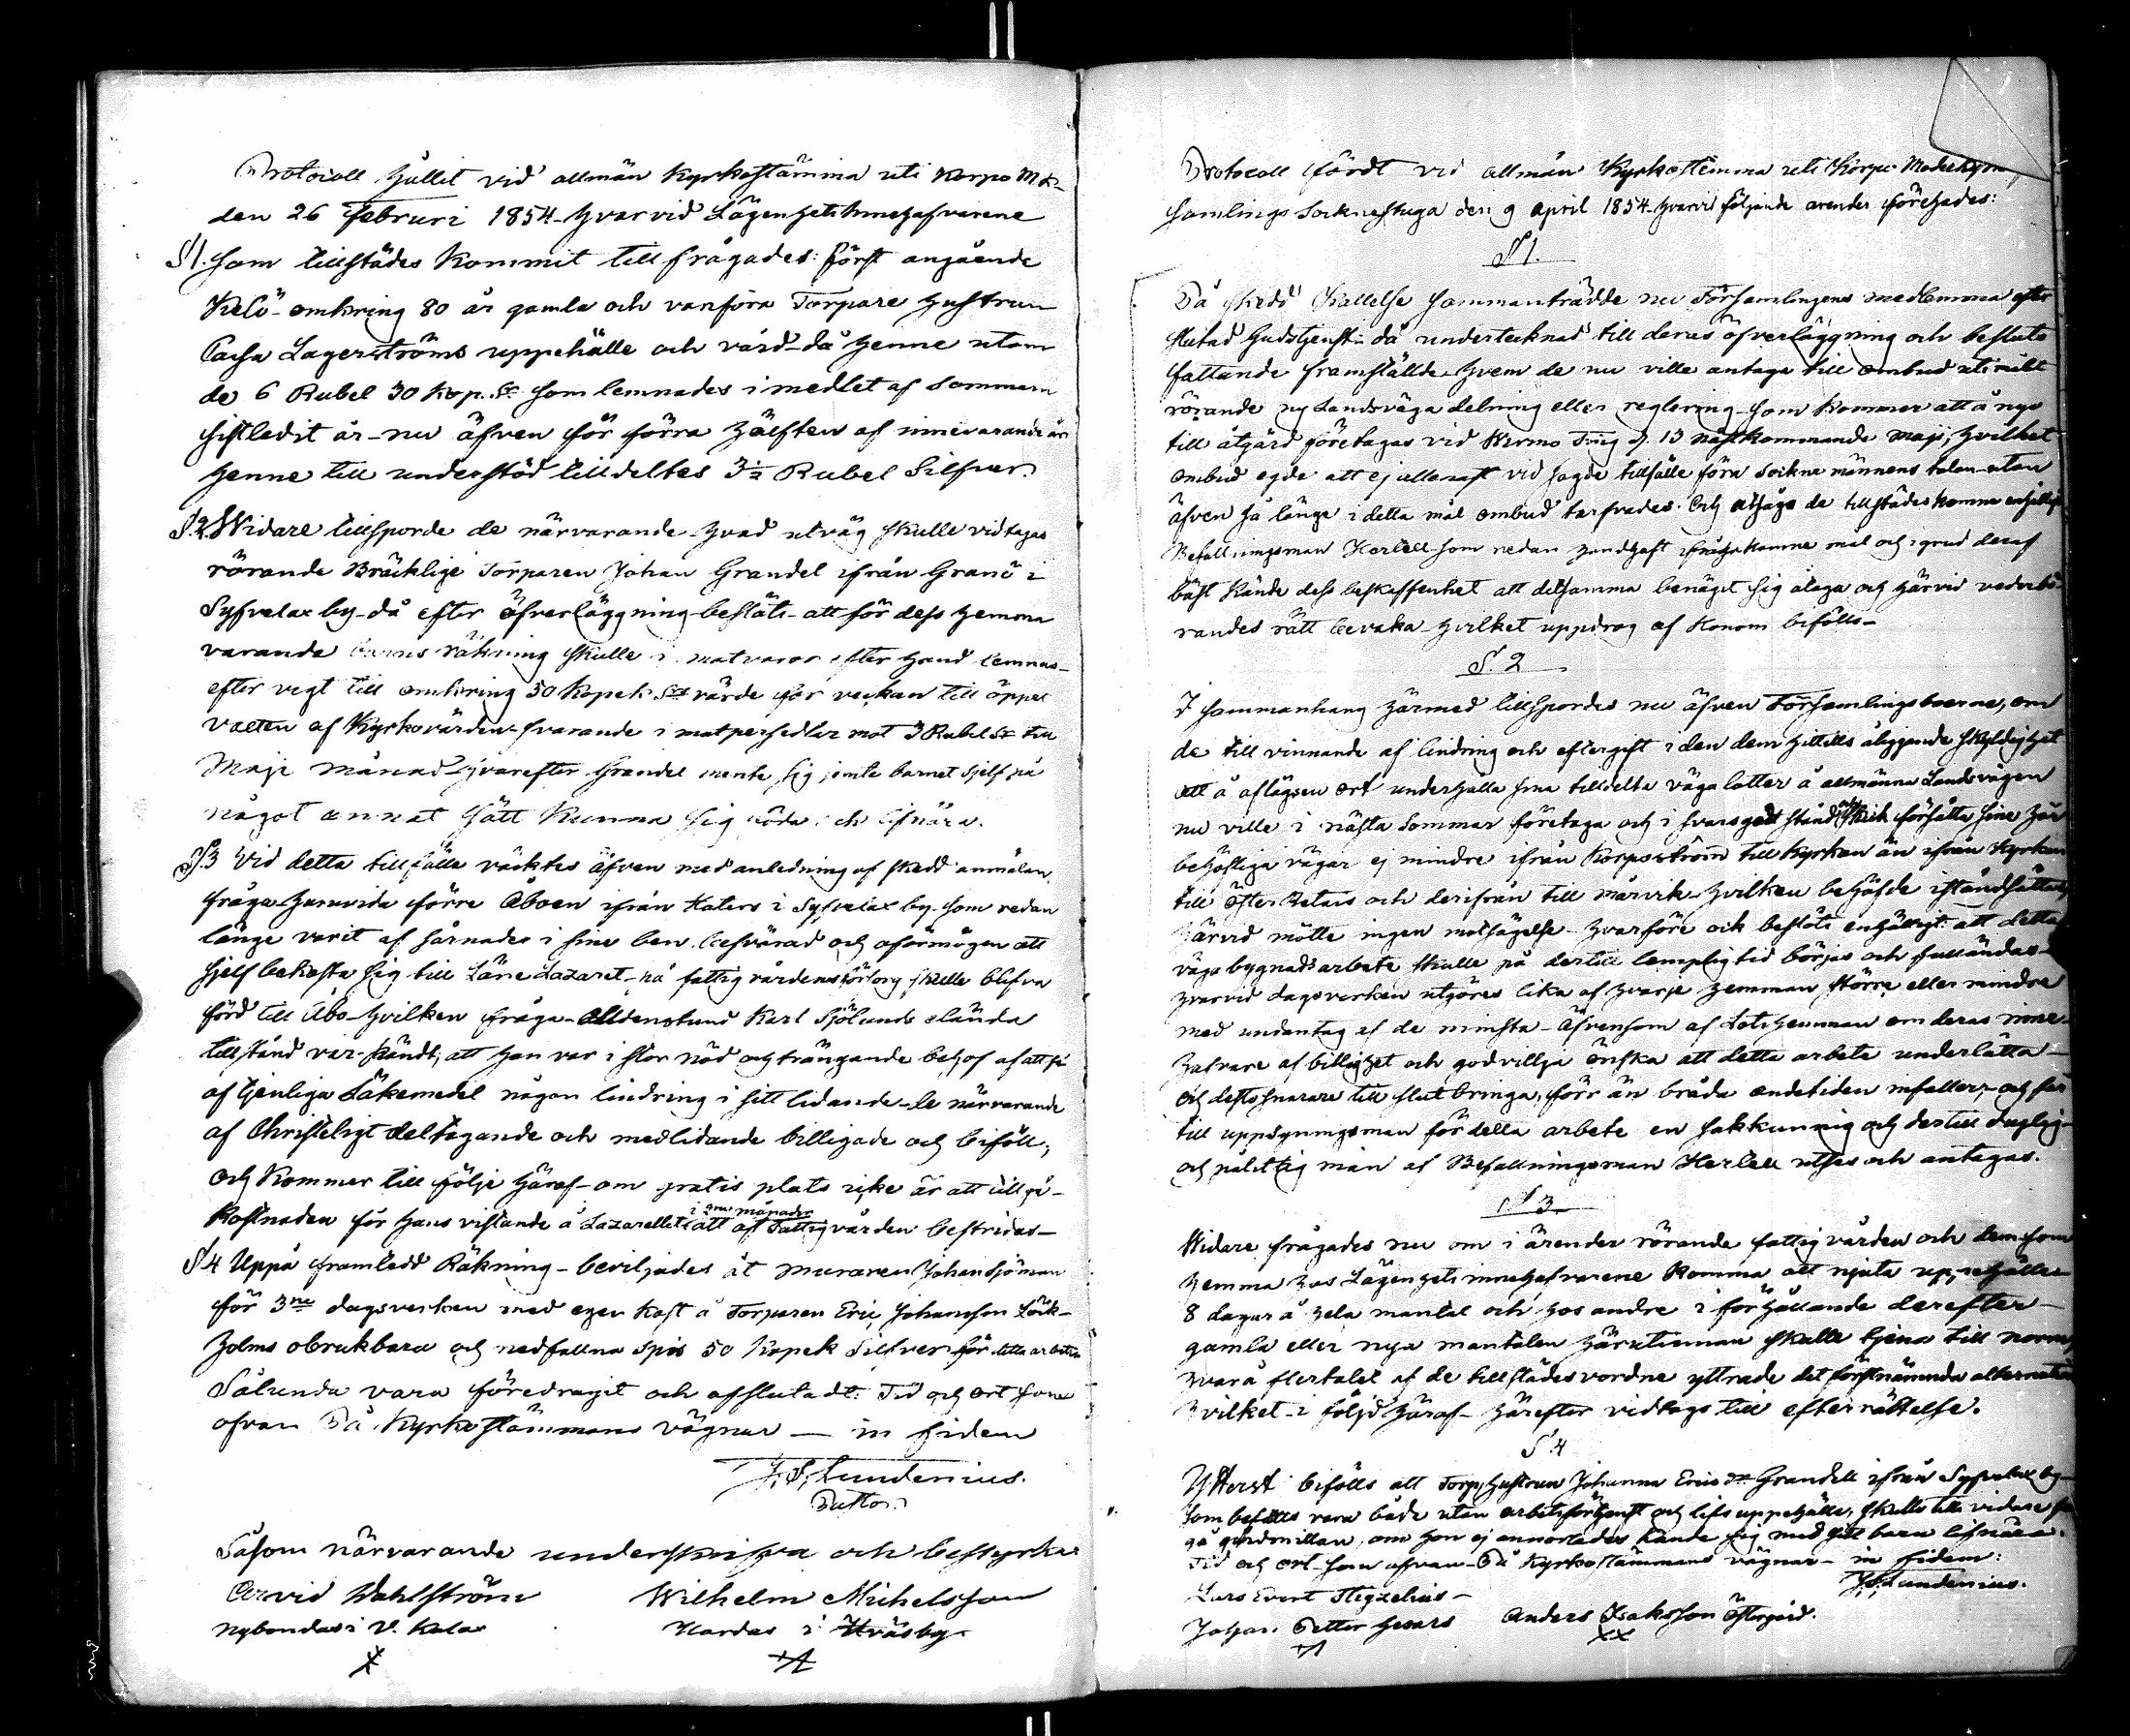 Protocoll hållit vid allmän Kyrkostämma uti Korpo M.k.
den 26 Februri 1854 hvarvid Lägenhets Innehafvarene
§1. som tillstädes kommit tillfrågades: först angående
Kelö omkring 80 år gamla och vanföra Torpare hustrun
Caisa Lagerströms uppehälle och vård då henne utom
de 6 Rubel 30 Kop. Sr som lemnades i medlet af Sommarn
sistledit år nu äfven för förra hälften af innevarande år
henne till understöd tilldeltes 3 Rubel Silfver.
§.2. Widare tillsporde de närvarande hvad utväg skulle vidtagas
rörande Bräcklige Torparen Johan Grandel ifrån Granö i
Syfvelax by då efter öfverläggning beslöts att för dess hemma
varande barns räkning skulle i matvaror efter hand lemnas
efter vigt till omkring 50 Kopek Srs värde för veckan till öppet
vatten af Kyrkovärden svarande i matpersedlar mot 3 Rubel Sr till
Maji månad hvarefter Grandel mente sig jemte barnet sjelf på
något annat sätt kunna sig föda och lifnära.
§.3 Vid detta tillfälle väcktes äfven med anledning af skedd anmälan
fråga huruvida förre Åboen ifrån Haters i Syfvelax by som redan
länge varit af sårnader i sine ben besvärad och oförmögen att
sjelf bekosta sig till Läne Lazaret på fattigvårdens försorg skulle blifva
förd till Åbo hvilken fråga alldenstund Karl Sjölunds elända
tillstånd var kändt, att han var i stor nöd och trängande behof af att få
af tjenliga Läkemedel någon lindring i sitt lidande de närvarande
af Christeligt deltagande och medlidande billigade och biföll,
och kommer till följe häraf om gratis plats icke är att tillgå
kostnaden för hans vistande å Lazarettet i 2ne månader att af Fattigvården bestridas
§4 Uppå framledd Räkning beviljades åt muraren Johan Sjöman
för 3ne dagsverken med egen kost å Torparen Eric Johansson Löck-
holms obrukbara och nedfallna spis 50 Kopek Silfver för detta arbete
Sålunda vara föredragit och afslutadt: Tid och ort som
ofvan På Kyrkostämmans vägnar in fidem
J. S. Lundenius.
Pastor.
Såsom närvarande underskrifva och bestyrka
Arvid Wahlström Wilhelm Michelsson
Nybondas i V. Kalax Hardas i Kräsby
Protocoll fördt vid allmän Kyrkostemma uti Korpo Moderkyrko
samlings Socknestuga den 9 April 1854 hvarvid följande ärender förehades:
§1.
På skedd Kallelse sammanträdde nu Församlingens medlemmar efter
slutad Gudstjenst då undertecknad till deras öfverläggning och besluts
fattande framställde hvem de nu ville antaga till ombud uti målet
rörande ny Landsväga delning eller reglering som kommer att å nyo
till åtgärd företagas vid Kirmo Ting d. 13 nästkommande maji, hvilket
ombud egde att ej allenast vid sagde tillfälle föra Socknemännens talan utan
äfven så länge i detta mål ombud tarfvades. Och utsågo de tillstädeskomne enhälligt
Befallningsman Hertell som redan handhaft ifrågakomne mål och i grund deraf
bäst kände dess beskaffenhet att detsamma benäget sig åtaga och härvid vederbö-
randes rätt bevaka hvilket uppdrag af honom bifölls
§. 2
I sammanhang härmed tillspordes nu äfven Församlingsboerne, om
de till vinnande af lindring och eftergift i den dem hittills åliggande skyldighet
att å aflägsen ort underhålla sina tilldelta vägalotter å allmänna Landsvägen
nu ville i nästa Sommar företaga och i svarsgodt stånd och skick försätta sine här
behöfliga vägar ej mindre ifrån Korpoström till Kyrkan än ifrån Kyrkan
till Öster Retais och derifrån till Marvik hvilken behöfde iståndsättas
härvid mötte ingen motsägelse hvarföre ock beslöts enhälligt: att detta
vägabygnadsarbete skulle på dertill lemplig tid börjas och fulländas
hvarvid dagsverken utgöres lika af hvarje hemman större eller mindre
med undantag af de minsta äfvensom af Lotshemman om deras inne-
hafvare af billighet och godvillja önska att detta arbete underlätta
och desto snarare till slut bringa, förr än bråda andetiden infaller, och har
till uppsyningsman för detta arbete en sakkunnig och dertill duglig
och pålitlig man af Befallningsman Hertell utses och antagas.
§ 3
Widare frågades nu om i ärender rörande fattigvården och dem som
hemma hos Lägenhets innehafvarene komma att njuta uppehälle
8 dagar å hela mantal och hos andre i förhållande derefter
gamla eller nya mantalen härutinnan skulle tjena till norm,
hvarå flertalet af de tillstädesvordne yttrade det förstnämnda alternativ
hvilket i följd häraf härefter vidtogs till efterrättelse.
§.4
Ytterst bifölls att Torp.hustrun Johanna Erics dr Grandell ifrån Syfvelax by
som befalls vara både utan arbetsförtjenst och lifs uppehälle, skulle till vidare få
gå gårdmillan, om hon ej annorlades kunde sig med sitt barn lifnära.
Tid och ort som ofvan På Kyrkostämmans vägnar in fidem:
J. S. Lundenius.
Lars Evert Stigzelius
Johan Petter Gesars Anders Isaksson Östergård.